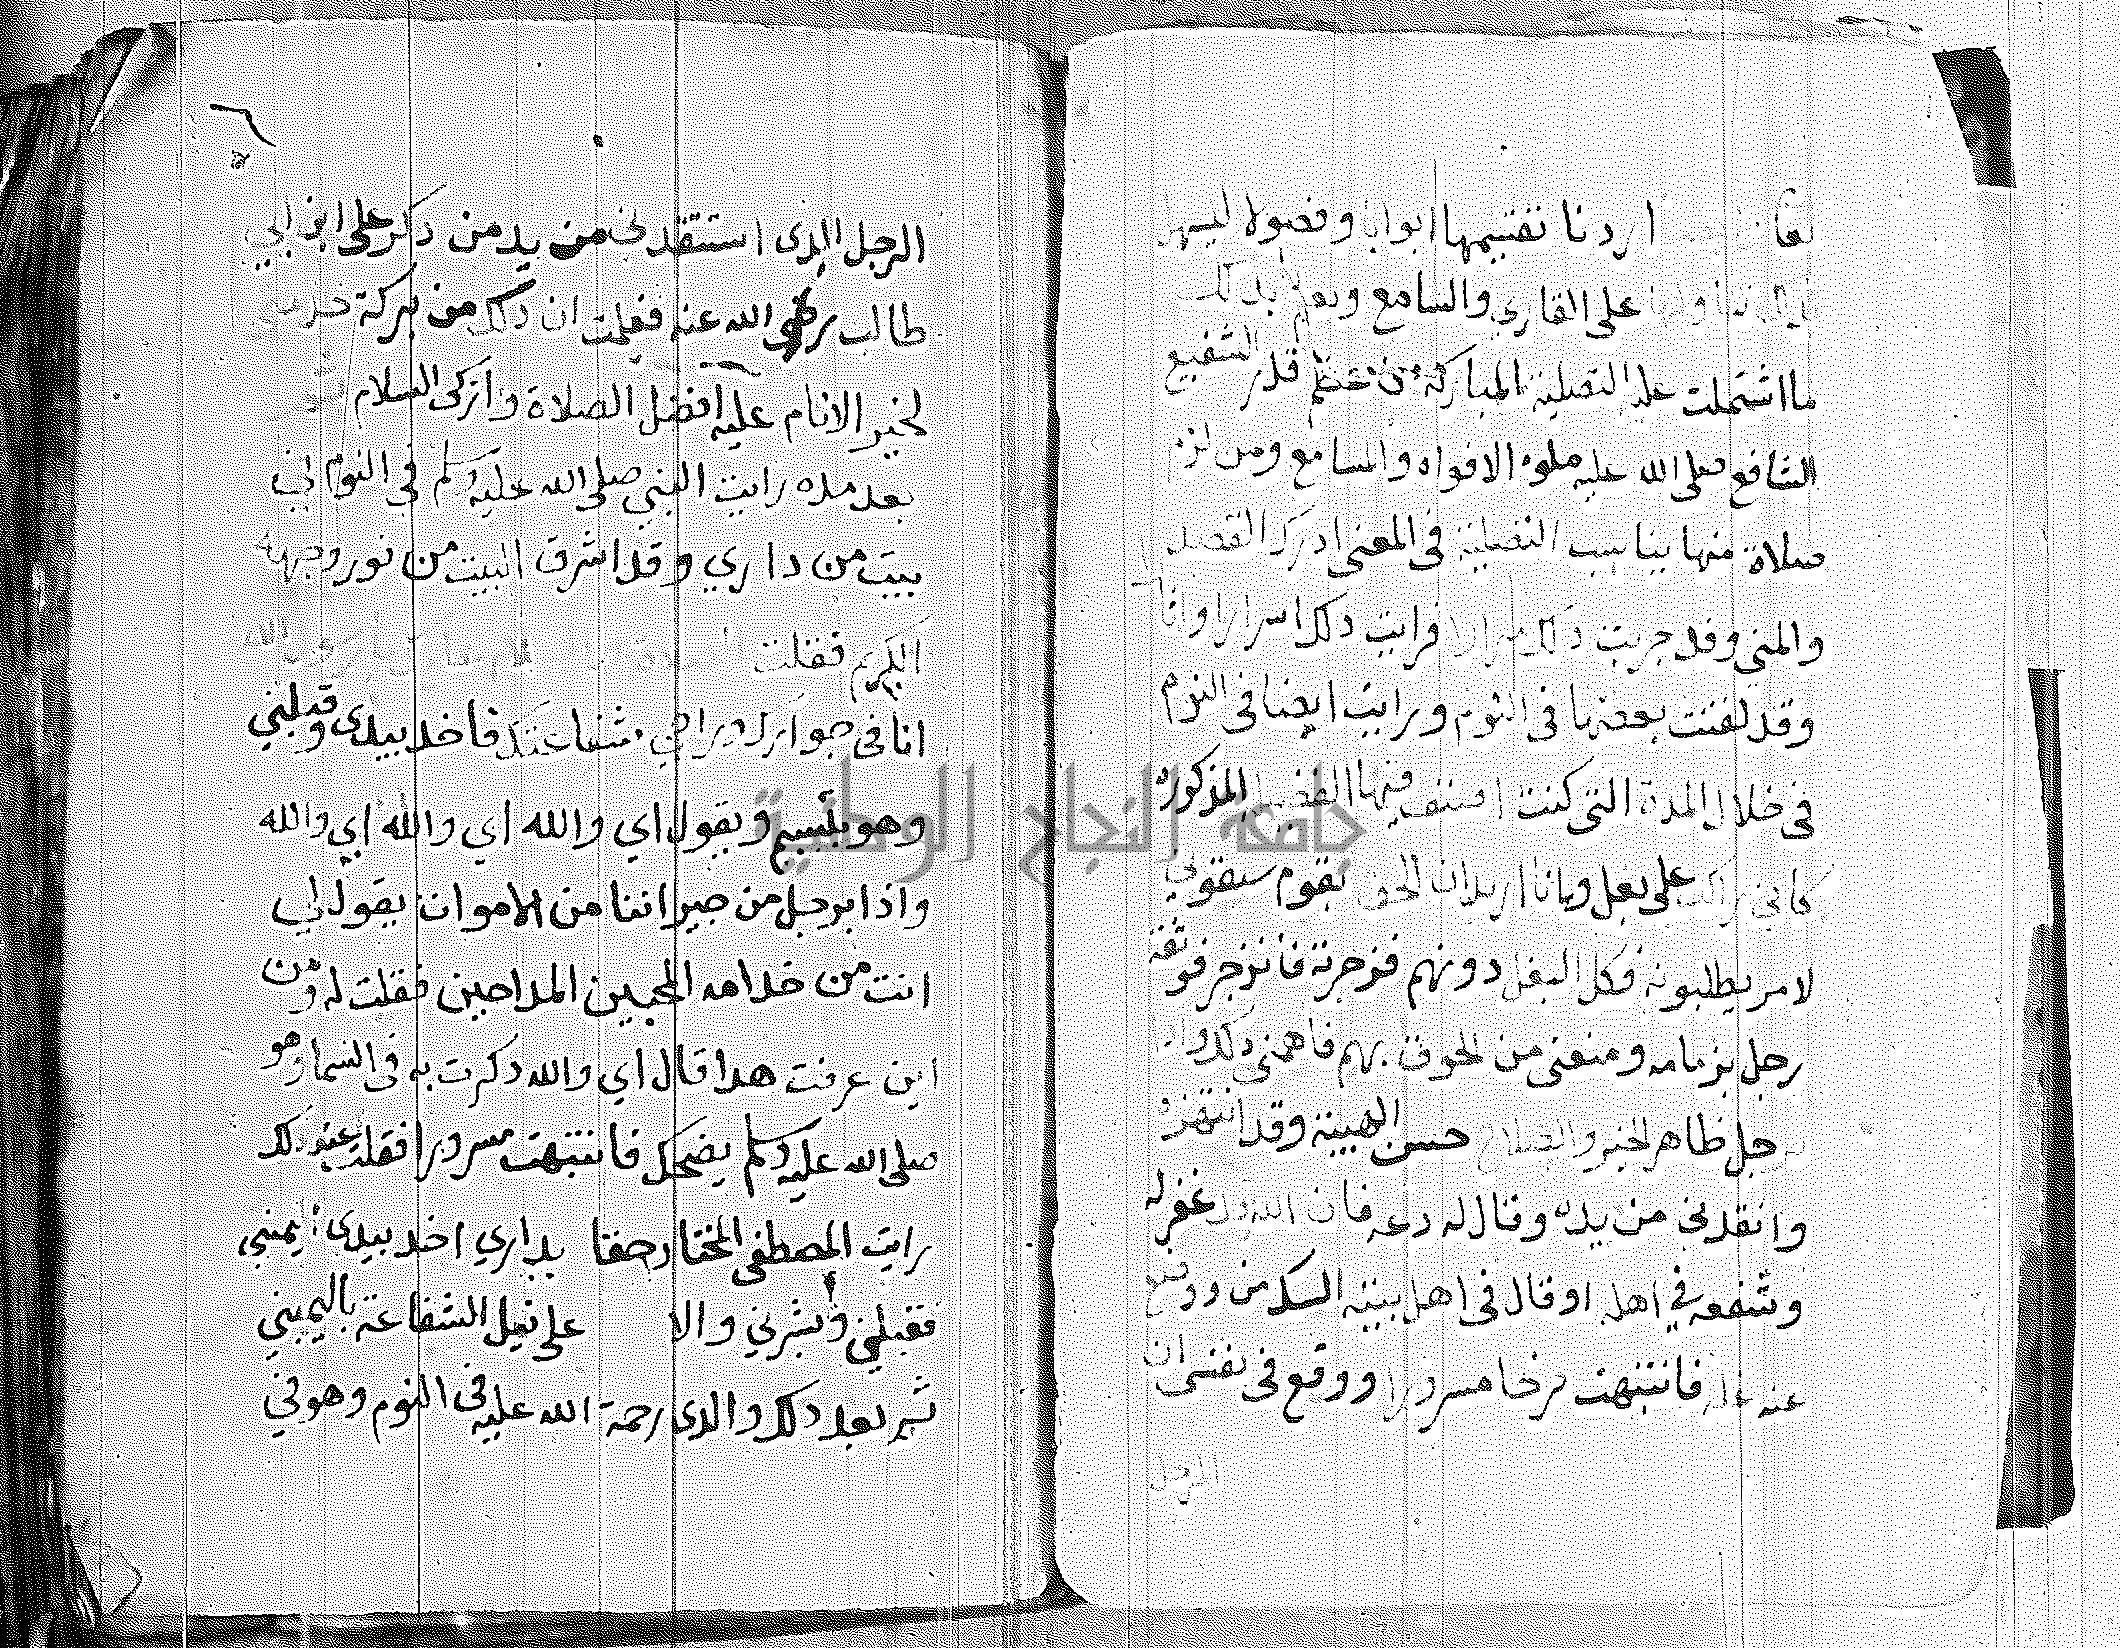 اردنا تقسيمها ابوابا وفصولا ليسهل
على القاري والسامع ويعلم بذلك
ما اشتملت عليه التصلية المباركة من عظم قدر الشفيع
الشافع صلى الله عليه ملوه الافواه والمسامع ومن لزم
صلاة منها يناسب التصلية في المعنى ادرك القصد
والمنى وقد جربت ذلك مرارا فرايت ذلك اسرارا وانا
وقد لقنت بعضها في النوم ورايت ايضا في النوم
في خلال المدة التي كنت اصنف فيها الفضيلة المذكورة
كاني راكب على بغل وانا اريد ان الحق بقوم سبقوني
لامر يطلبونه فكل البغل دونهم فزجرته فانزجر فوثقه
رجل بزمامه ومنعني من اللحوق بهم فاهمني ذلك واذا
رجل ظاهر الخير والصلاح حسن الهيئة وقد انتهره
وانقذني من يده وقال له دعه فان الله قد غفر له
وشفعه في اهله او قال في اهل بيته الشك من ووقع
عنه فانتبهت فرحا مسرورا ووقع في نفسي ان
الرجل
الرجل الذي استنقذني من يد من ذكر علي ابن ابي
طالب رضي الله عنه فعلمت ان ذلك من بركة
لخير الانام عليه افضل الصلاة وازكى السلام
بعد مده رايت النبي صلى الله عليه وسلم في النوم اني
بيت من داري وقد اشرق البيت من نور وجهه
الكريم فقلت
انا في جوارك وراجي شفاعتك فاخذ بيدي وقبلني
وهو يتبسم ويقول اي والله اي والله اي والله
واذا برجل من جيراننا من الاموات يقول لي
انت من خدامه المحبين المداحين فقلت له ومن
اين عرفت هذا قال اي والله ذكرت به في السماء وهو
صلى الله عليه وسلم يضحك فانتبهت مسرورا فقلت عند ذلك
رايت المصطفى المختار حقا بداري اخذ بيدي اليمنى
فقبلني وبشرني والا على نيل الشفاعة باليمين
ثم بعد ذلك والدي رحمة الله عليه في النوم وهو في
جامعة النجاح الوطنية